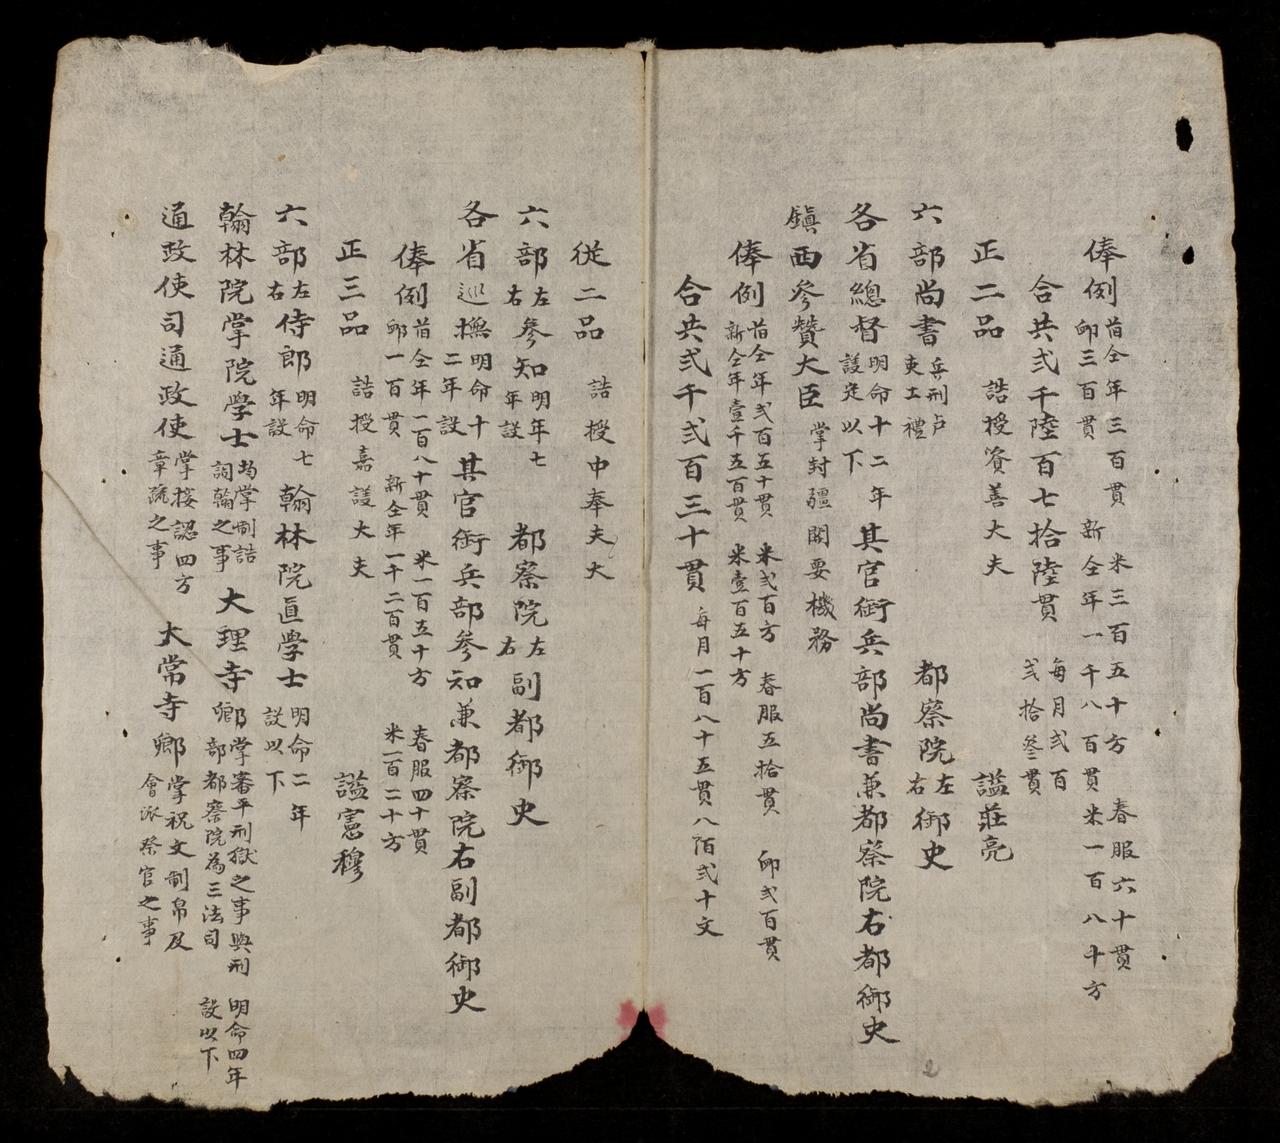 俸例 昔仝年三百貫 米三百五十方 春服六十貫
䘏三百貫 新仝年一千八百貫米一百八十方
合共弍千陸百七拾陸貫 每月弍百
弍拾叄貫
正二品 誥授資善大夫 諡莊亮
六部尚書 兵刑户
吏工禮 都察院左右御史
各省總督 明命十二年
議定以下 其官銜兵部尚書兼都察院右都御史
鎮西參贊大臣 掌封疆關要機務
俸例 昔仝年弍百五十貫 米弍百方 春服五拾貫 䘏弍百貫
新仝年壹千五百貫 米壹百五十方
合共弍千弍百三十貫 每月一百八十五貫八陌弍十文
從二品 誥授中奉夫大
六部左右參知 明年七
年設 都察院左右副都御史
各省巡撫 明命十
二年設 其官銜兵部參知兼都察院右副都御史
俸例 昔仝年一百八十貫 米一百五十方 春服四十貫
䘏一百貫 新仝年一千二百貫 米一百二十方
正三品 誥授嘉議大夫 諡憲穆
六部左右侍郎 明命七
年設 翰林院直學士 明命二年
設以下
翰林院掌院學士 均掌制誥
詞翰之事 大理寺卿 掌審平刑獄之事與刑
部都察院為三法司 明命四年
設以下
通政使司通政使 掌接認四方
章疏之事 大常寺卿 掌祝文制帛及
會派祭官之事
2